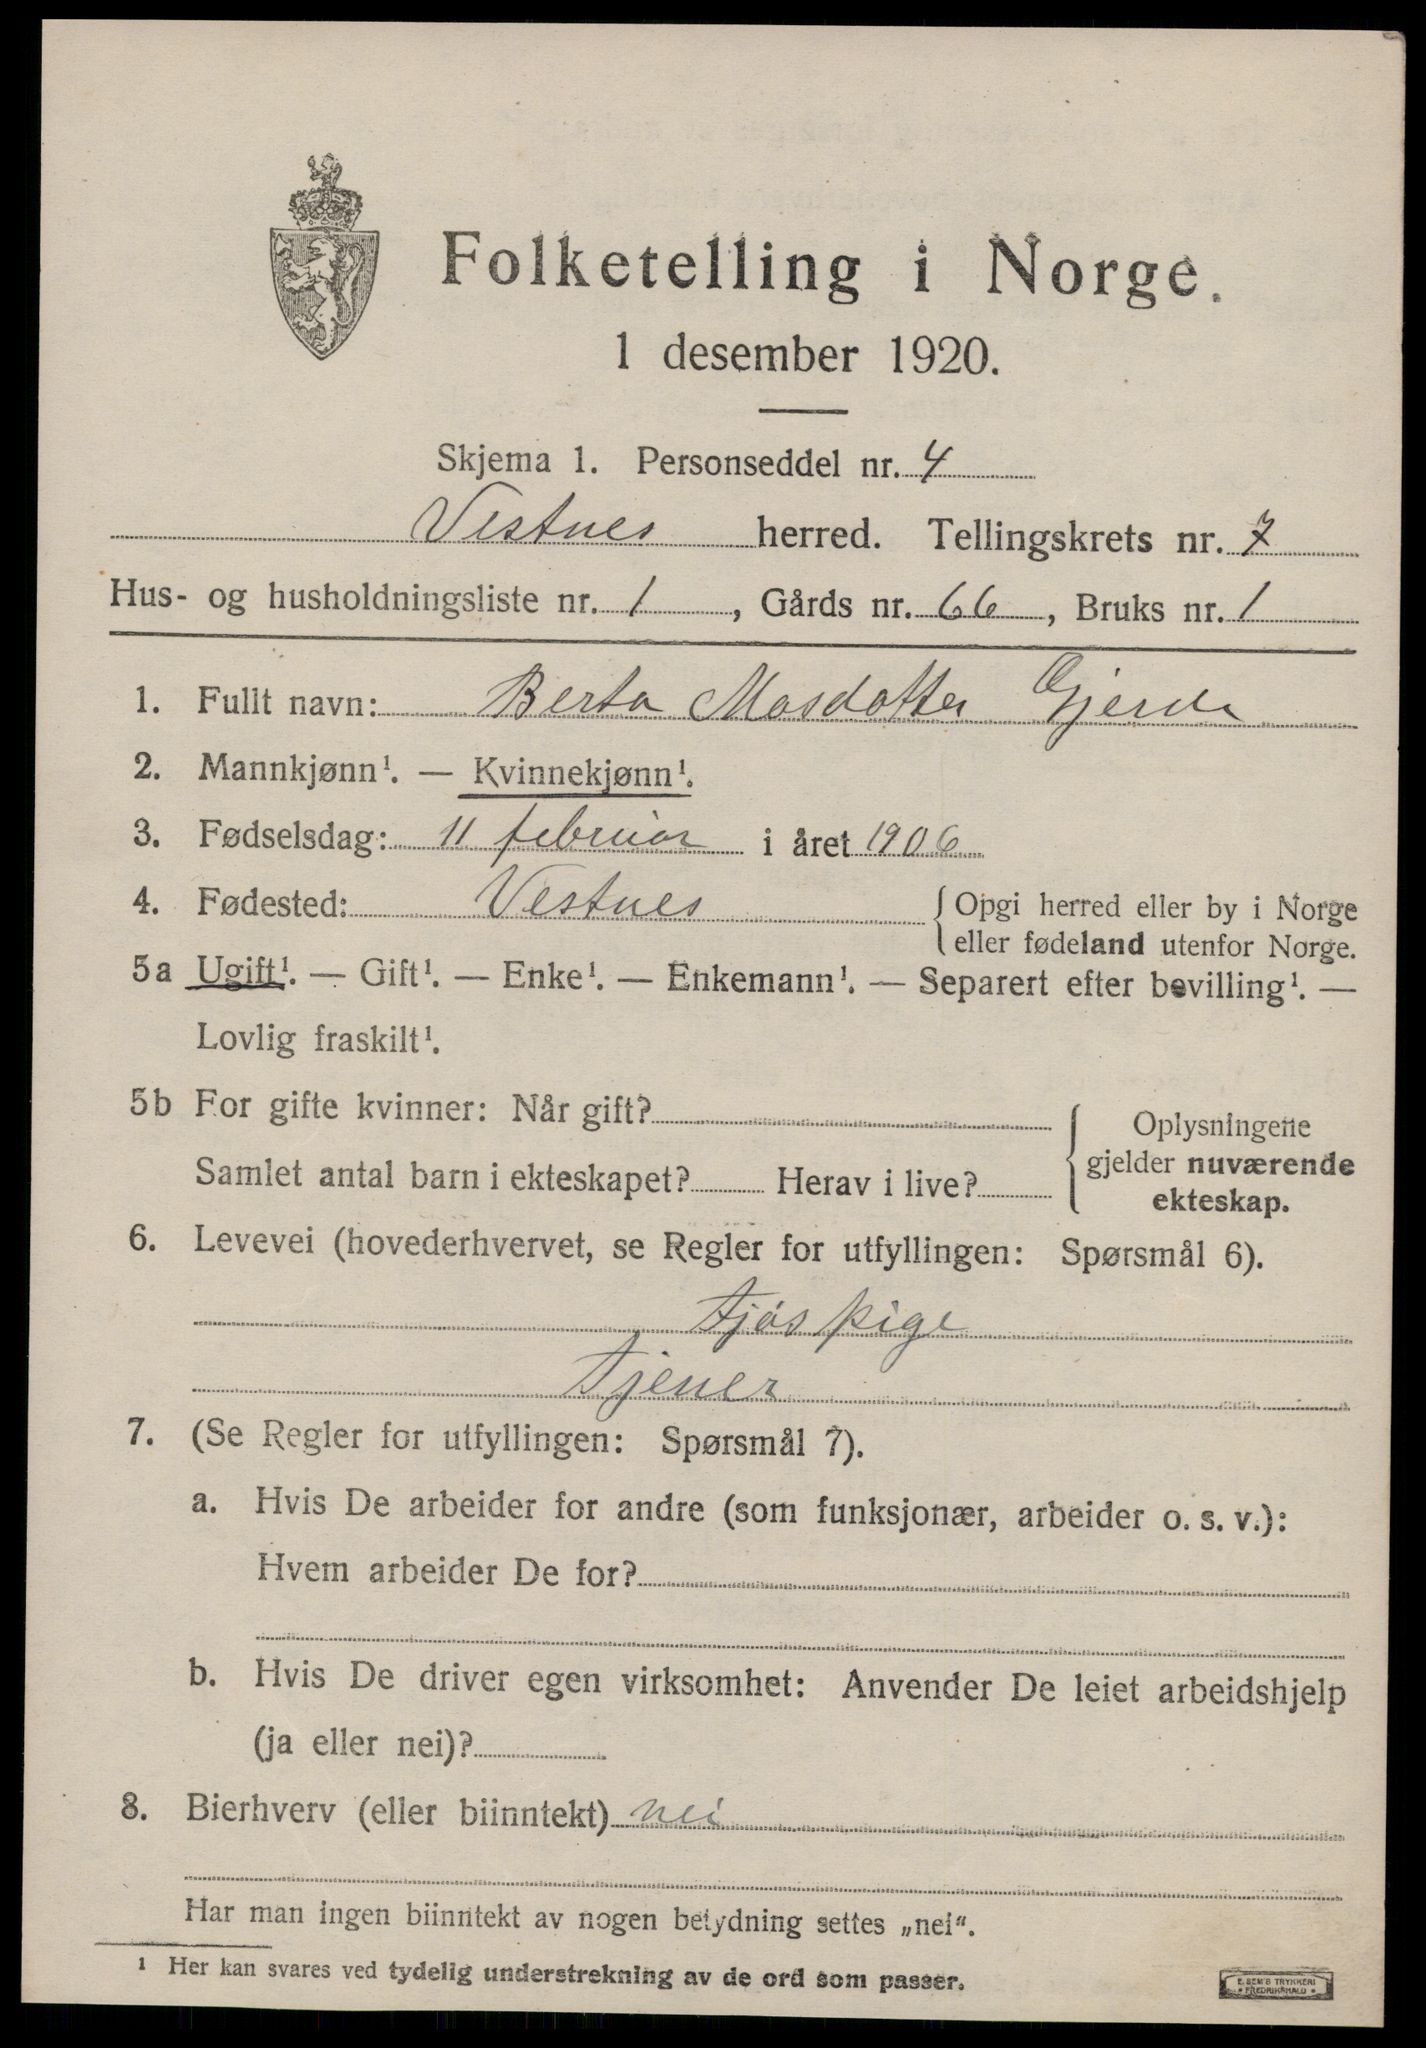 Folketelling i Norge.
1 desember 1920.
Skjema 1. Personseddel nr. 4
Vestnes herred. Tellingskrets nr. 7
Hus- og husholdningsliste nr. 1, Gårds nr. 66, Bruks nr. 1
1. Fullt navn: Berta Masdotter Gjerde
2. Mannkjønn¹. — Kvinnekjønn¹.
3. Fødselsdag: 11 februar i året 1906
4. Fødested: Vestnes {Opgi herred eller by i Norge
eller fødeland utenfor Norge.
5a Ugift¹. — Gift¹. — Enke¹. — Enkemann¹. — Separert efter bevilling¹. —
Lovlig fraskilt¹.
5b For gifte kvinner: Når gift? {Oplysningene
gjelder nuværende
ekteskap.
Samlet antal barn i ekteskapet? Herav i live?
6. Levevei (hovederhvervet, se Regler for utfyllingen: Spørsmål 6).
Fjøspige
Tjener
7. (Se Regler for utfyllingen: Spørsmål 7).
a. Hvis De arbeider for andre (som funksjonær, arbeider o. s. v.):
Hvem arbeider De for?
b. Hvis De driver egen virksomhet: Anvender De leiet arbeidshjelp
(ja eller nei)?
8. Bierhverv (eller biinntekt) nei
Har man ingen biinntekt av nogen betydning settes „nei“.
¹ Her kan svares ved tydelig understrekning av de ord som passer.
E. SEM'S TRYKKERI
FREDRIKSHALD